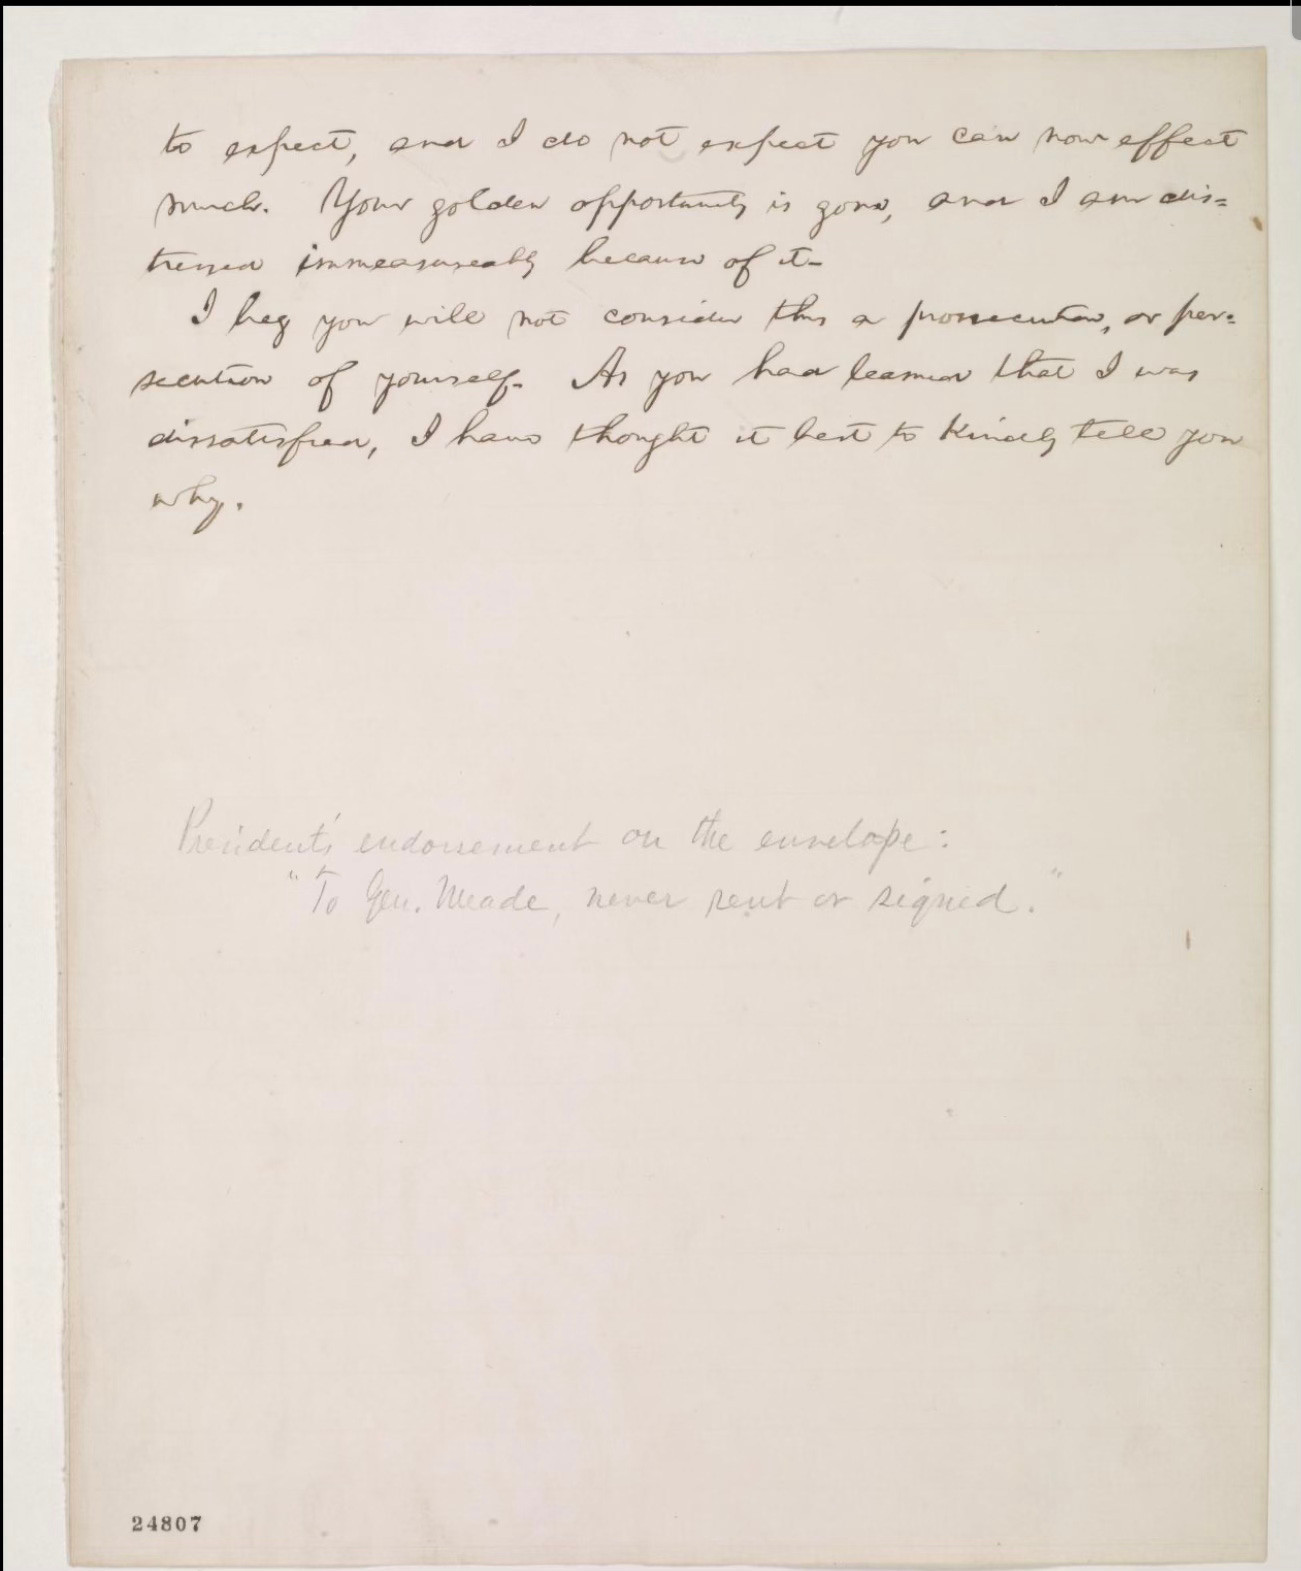 to expect, and I do not expect you can now effect
much. Your golden opportunity is gone, and I am dis=
tressed immeasureably because of it—
I beg you will not consider this a prossecution, or per=
secution of yourself. As you had learned that I was
dissatisfied, I have thought it best to kindly tell you
why.
President's endorsement on the envelope:
"To Gen. Meade, never sent or signed."
24807